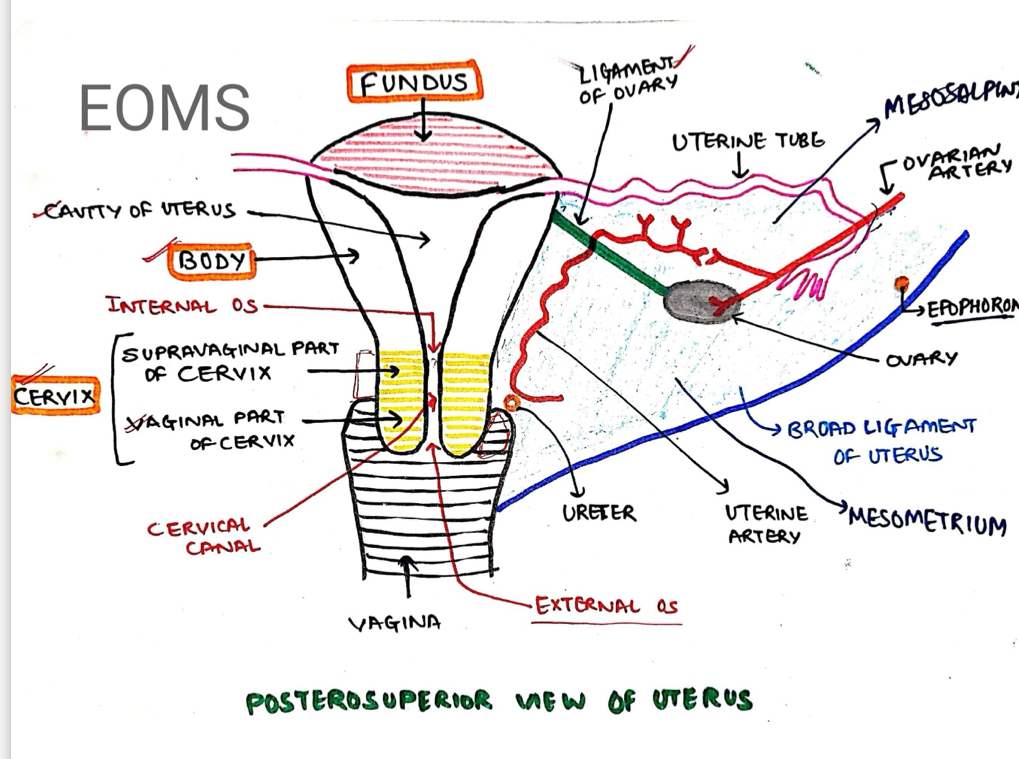 EOMS
FUNDUS
LIGAMENT
OF OVARY
MESOSALPIN
UTERINE TUBE
OVARIAN
ARTERY
CAVITY OF UTERUS
BODY
INTERNAL OS
SUPRAVAGINAL PART
OF CERVIX
CERVIX
VAGINAL PART
OF CERVIX
EPOPHORON
OVARY
BROAD LIGAMENT
OF UTERUS
URETER
UTERINE
ARTERY
MESOMETRIUM
CERVICAL
CANAL
EXTERNAL OS
VAGINA
POSTEROSUPERIOR VIEW OF UTERUS